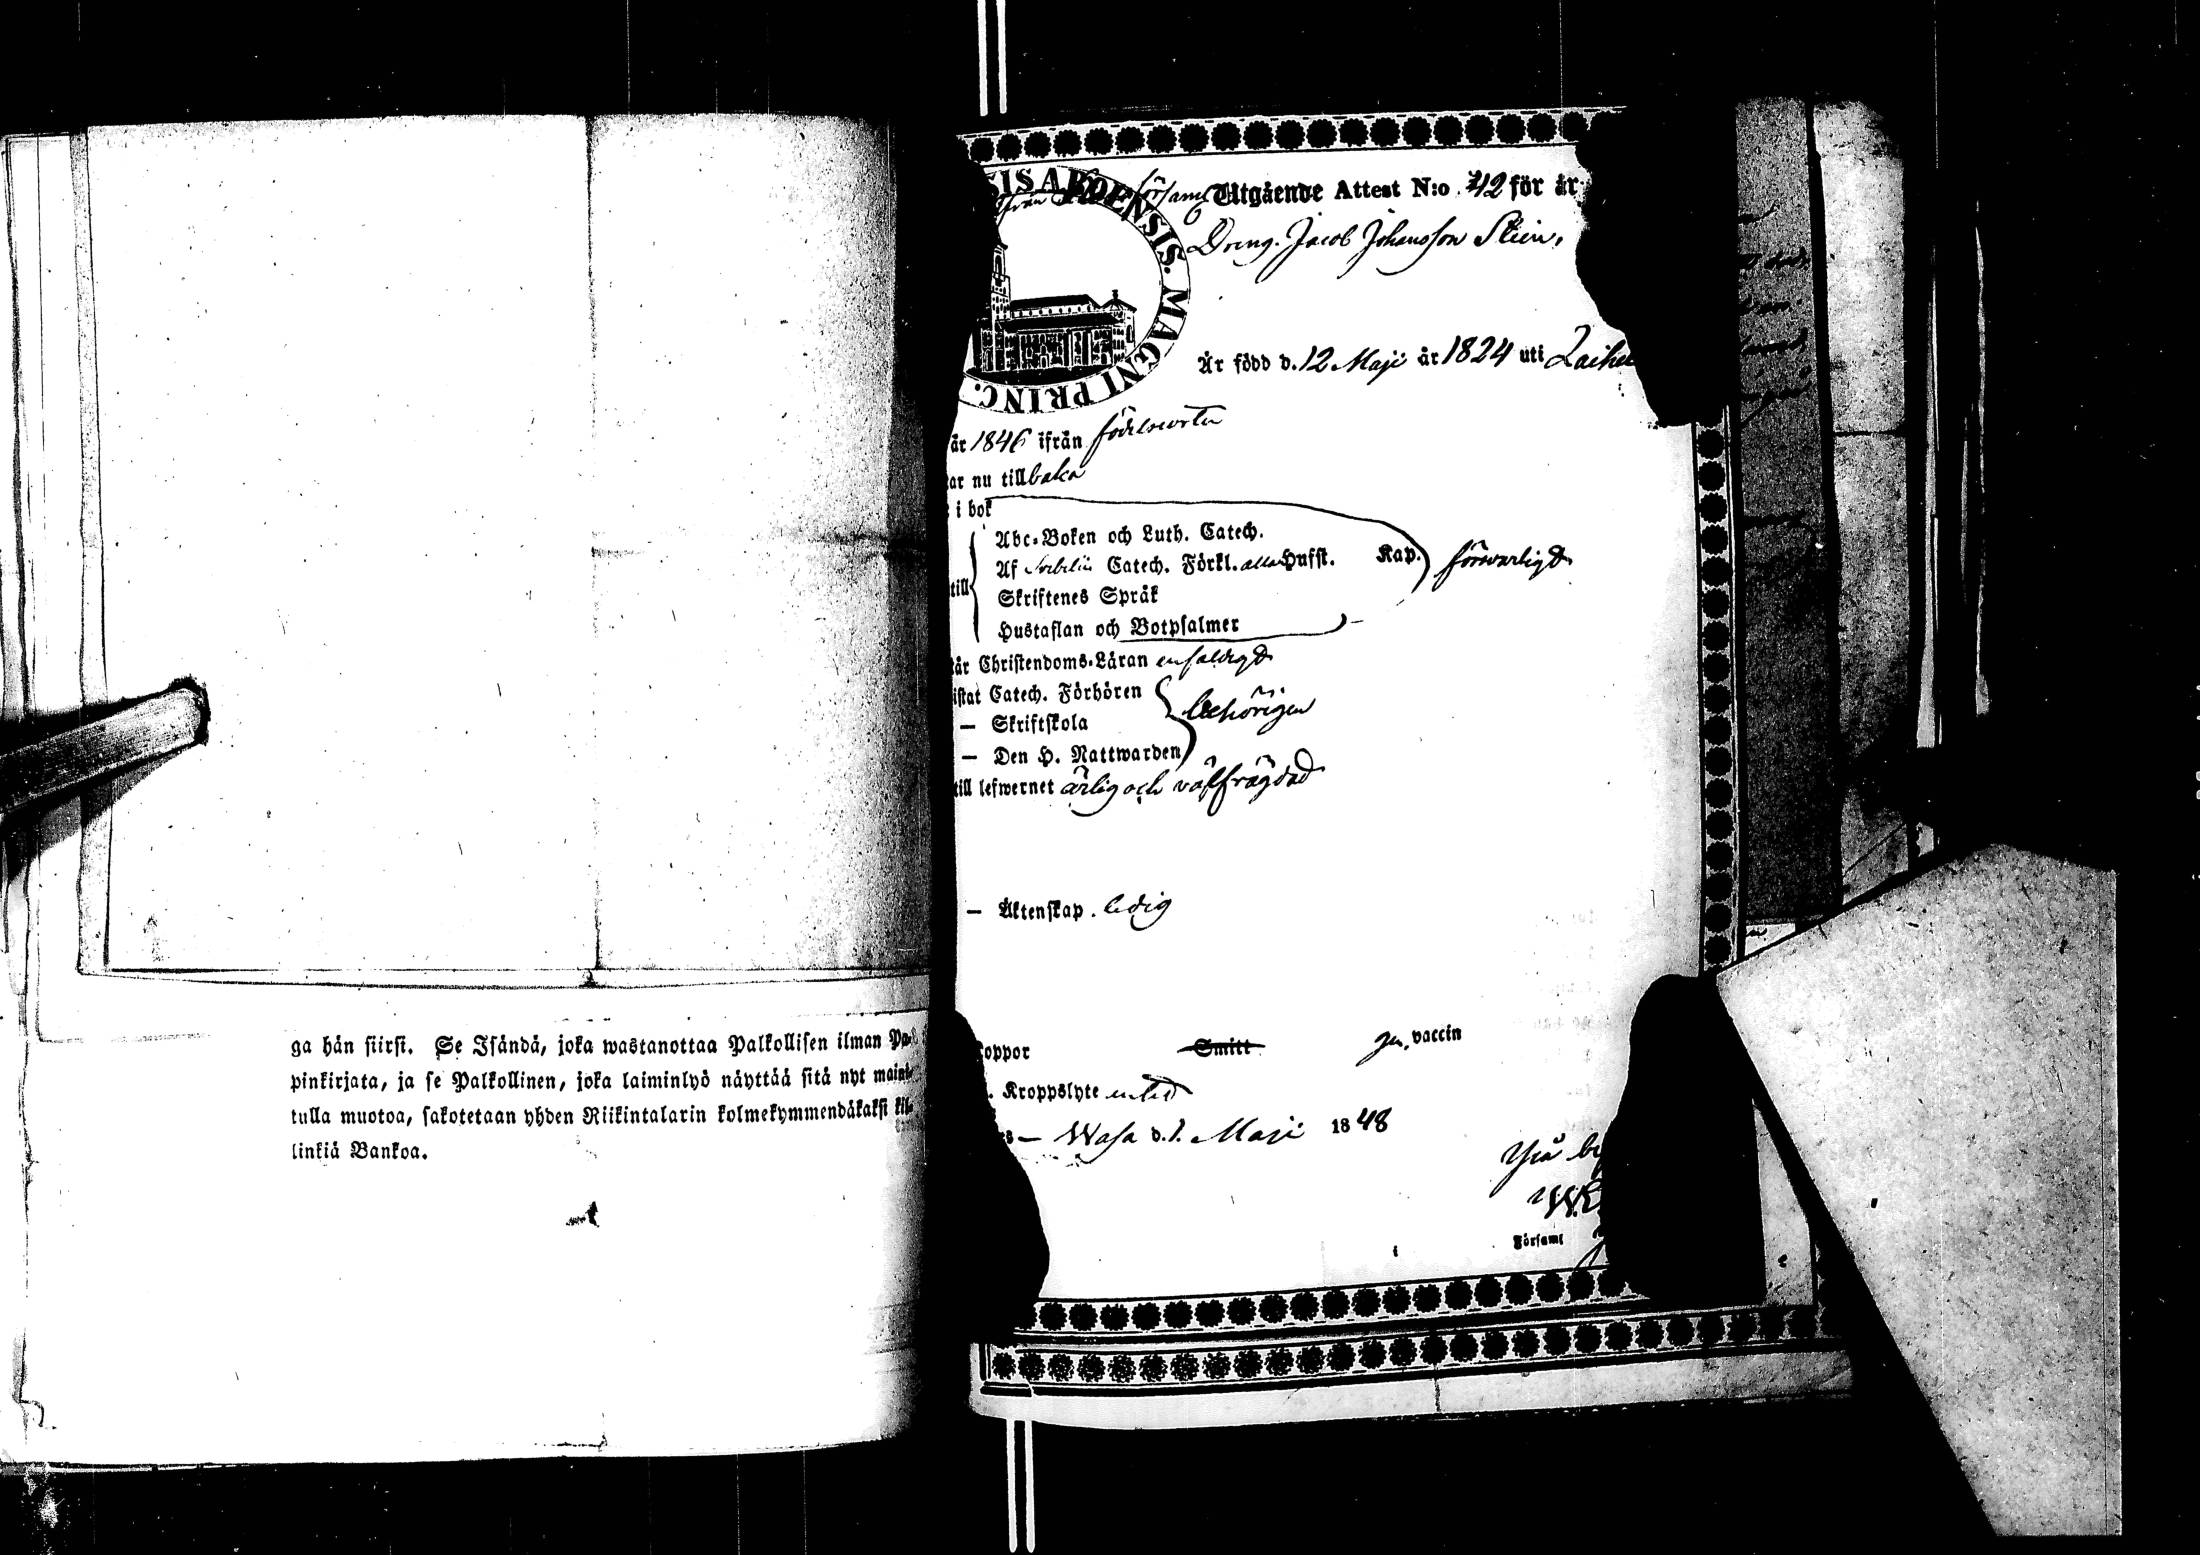 ga hän siirsi. Se Isändä, joka wastanottaa Palkollisen ilman Pa-
pinkirjata, ja se Palkollinen, joka laiminlyö näyttää sitä nyt maini-
tulla muotoa, sakotetaan yhden Riikintalarin kolmekymmendäkaksi kil-
linkiä Bankoa.
SIS ABOENSIS. MAGNI PRINC.
ifrån församl Utgående Attest N:o 42 för år
Dreng. Jacob Johansson Stein,
Är född d. 12 Maji år 1824 uti Laihe
år 1846 ifrån födelseorten
ar nu tillbaka
i bok
Abc-Boken och Luth. Catech.
Af Svebelii Catech. Förkl. alla Hufst. Kap. försvarligt
till
Skriftenes Språk
Hustaflan och Botpsalmer
år Christendoms-Läran enfaldigt
istat Catech. Förhören
— Skriftskola behörigen
— Den H. Nattwarden
till lefwernet ärlig och välfrägdad
— Äktenskap. ledig
oppor Smitt gm. vaccin
. Kroppslyte
— Wasa d. 1. Maji 1848
W.
Församl